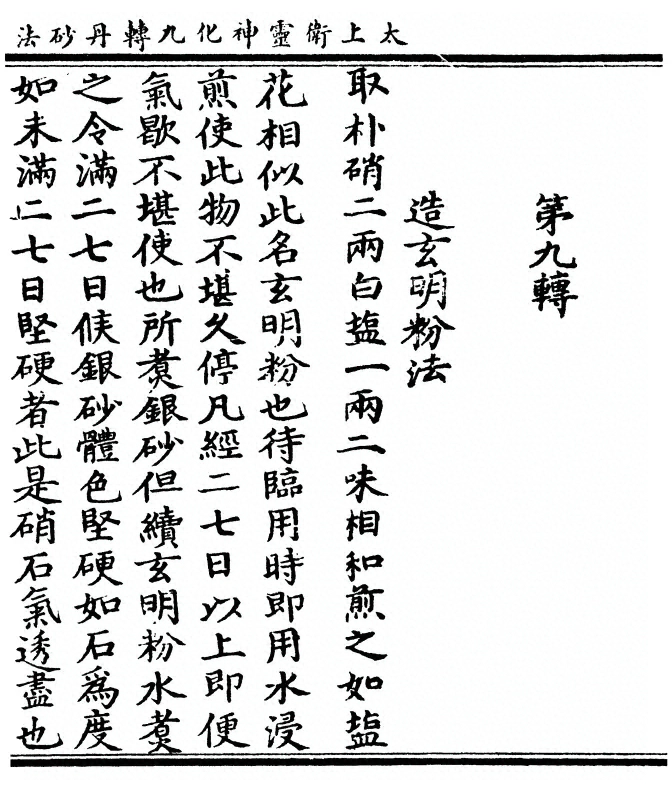 太上衛靈神化九轉丹砂法
第九轉
造玄明粉法
取朴硝二兩白塩一兩二味相和煎之如塩
花相似此名玄明粉也待臨用時即用水浸
煎使此物不堪久停凡經二七日以上即便
氣歇不堪使也所煑銀砂但續玄明粉水煑
之令滿二七日候銀砂體色堅硬如石爲度
如未滿二七日堅硬者此是硝石氣透盡也